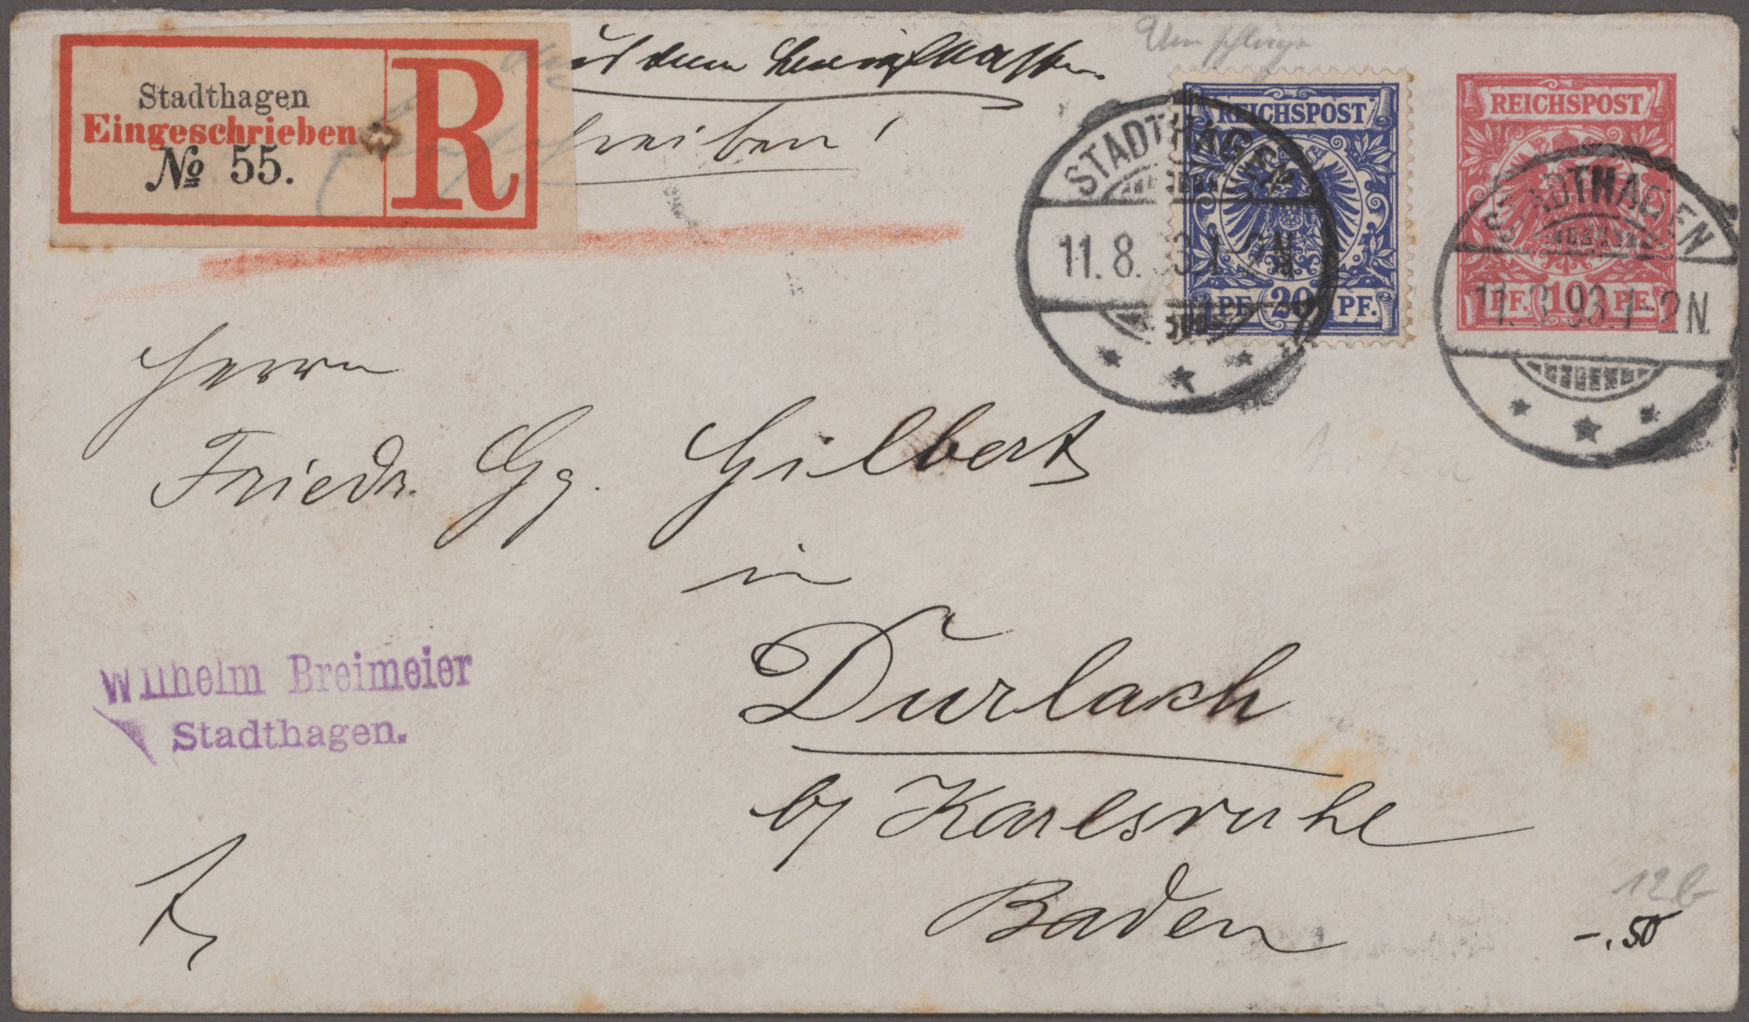 Stadthagen
Eingeschrieben
№ 55.
R
aus dem Briefkasten.
REICHSPOST
PF. 20 PF.
REICHSPOST
PF. 10 PF.
STADTHAGEN
11.8.93.1-2N.
STADTHAGEN
11.8.93.1-2N.
Herrn
Friedr. Gg. Gilbert
in
Durlach
b/ Karlsruhe
Baden
Wilhelm Breimeier
Stadthagen.
12b
-.50